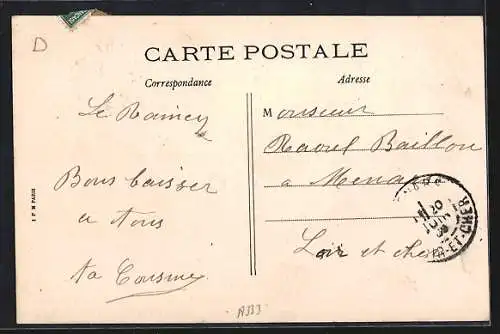 D
CARTE POSTALE
Correspondance
Adresse
Le Raincy
Bons baisers
a tous
ta Cousine
Monsieur
Raoul Baillon
a Menars
Loir et cher
20
JUIN
ET-CHER
I P M PARIS
A333